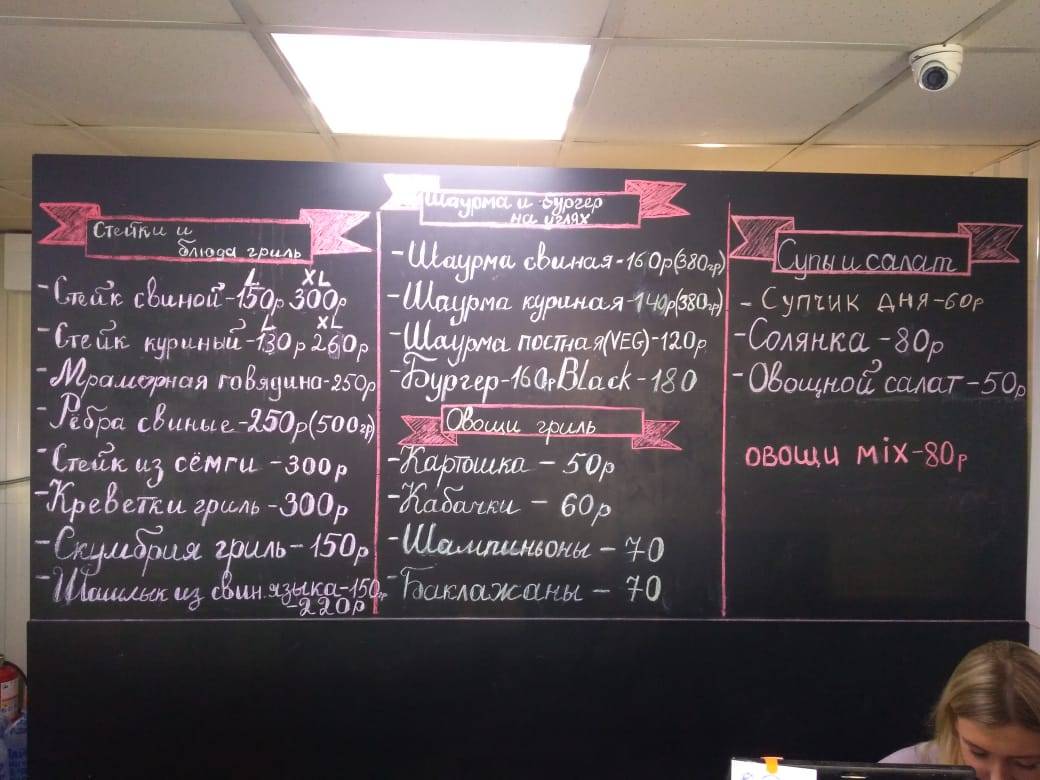 Стейки и
блюда гриль
L XL
-Стейк свиной-150р 300р
L XL
-Стейк куриный-130р 260р
-Мраморная говядина-250р
-Рёбра свиные-250р(500гр)
-Стейк из сёмги -300р
-Креветки гриль-300р
-Скумбрия гриль-150р
-Шашлык из свин.языка-150гр
-220р
Шаурма и бургер
на углях
-Шаурма свиная-160р(380гр)
-Шаурма куриная-140р(380гр)
-Шаурма постная(VEG)-120р
-Бургер-160р Black-180
Овощи гриль
-Картошка - 50р
-Кабачки - 60р
-Шампиньоны - 70
-Баклажаны - 70
Супы и салат
- Супчик дня-60р
-Солянка -80р
-Овощной салат-50р
овощи mix-80р